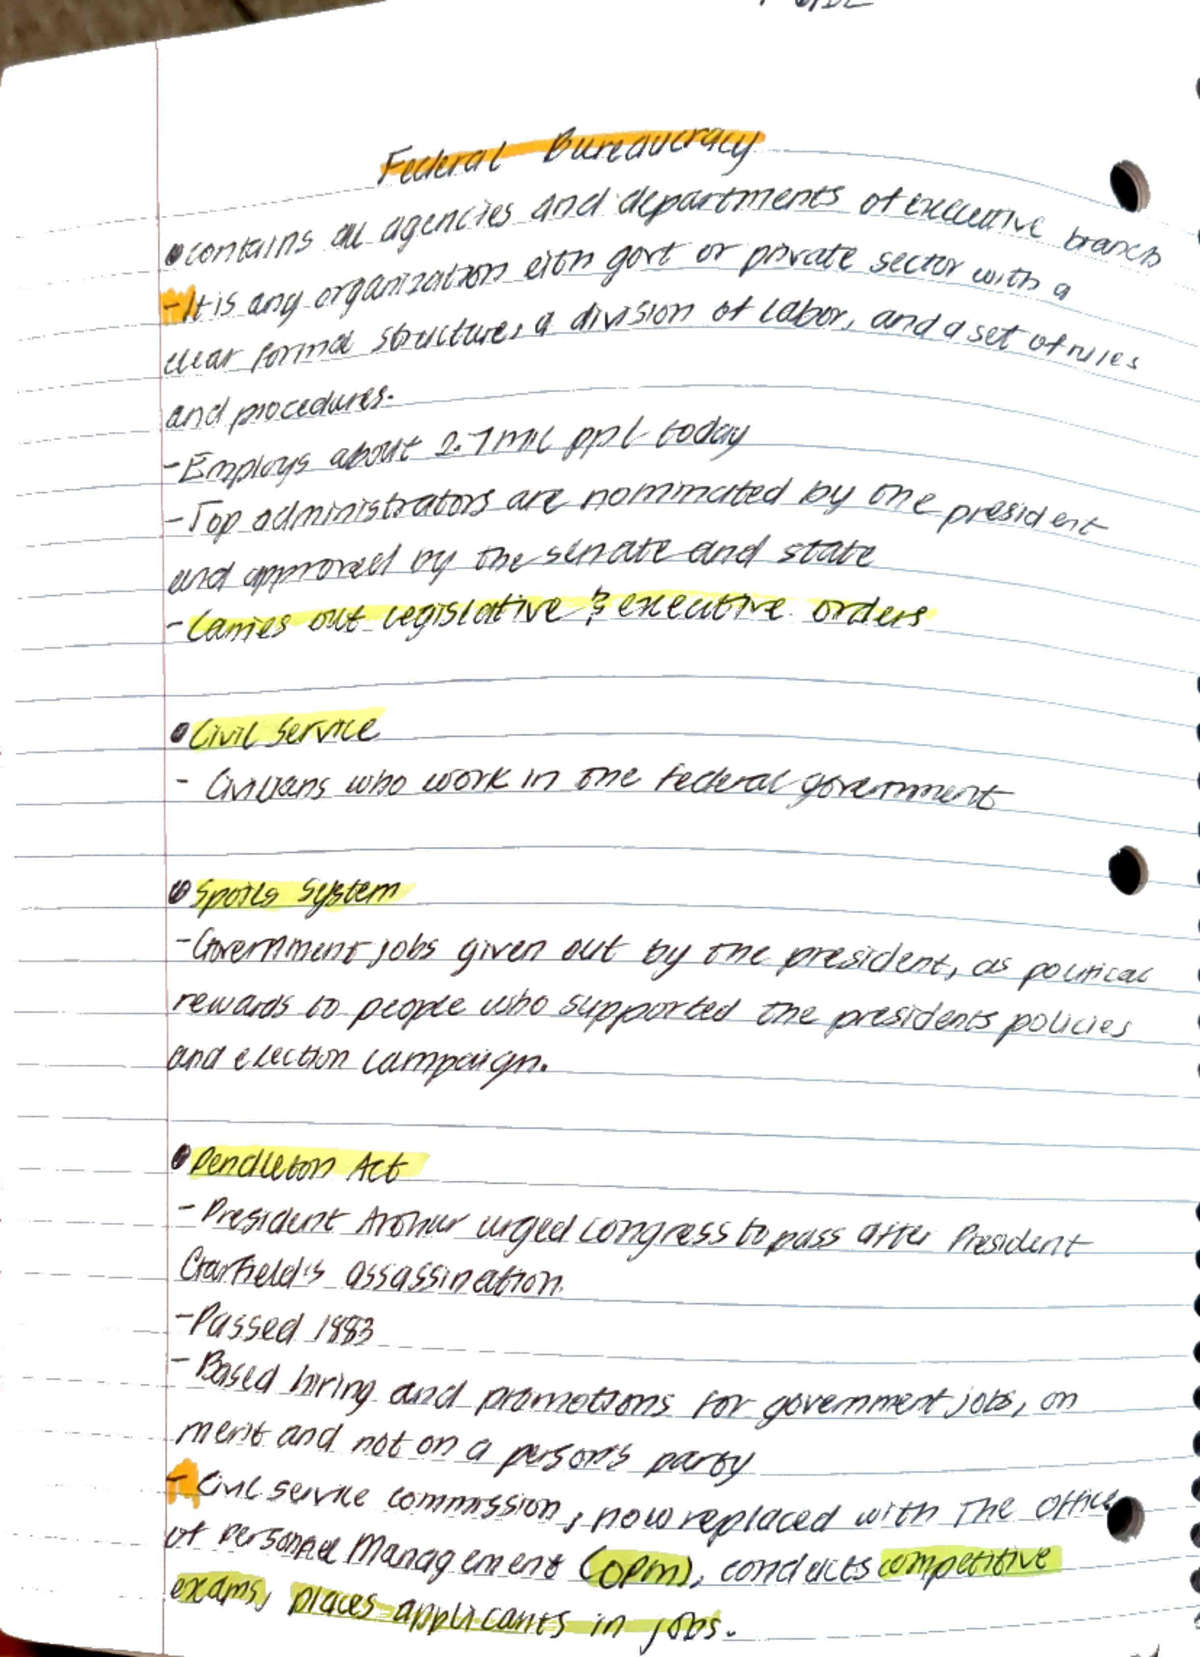 Federal Bureaucracy
•contains all agencies and departments of executive branch
-It is any organization eith govt or private sector with a
clear formal structure, a division of labor, and a set of rules
and procedures.
-Employs about 2.7 mil ppl today
-Top administrators are nominated by the president
and approved by the senate and state
-Carries out legislative & executive orders
•Civil Service
- Civilians who work in the federal government
•Spoils System
-Government jobs given out by the president, as political
rewards to people who supported the presidents policies
and election campaign.
•Pendleton Act
-President Arthur urged congress to pass after President
Garfield's assassination.
-Passed 1883
-Based hiring and promotions for government jobs, on
merit and not on a person's party
-Civil service commission, now replaced with The Office
of Personnel Management (OPM), conducts competitive
exams, places applicants in jobs.